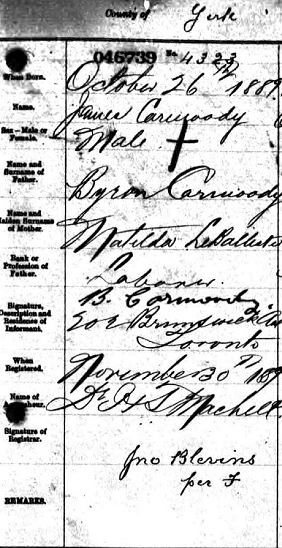 County of York
046739 No. 4323
When Born. October 26th 1889
Name. James Carmoody
Sex—Male or Female. Male
Name and Surname of Father. Byron Carmoody
Name and Maiden Surname of Mother. Matilda LeBallister
Rank or Profession of Father. Laborer
Signature, Description and Residence of Informant. B. Carmoody
202 Brunswick Av
Toronto
When Registered. November 30th 189
Name of Accoucheur. Dr. H T Machell
Signature of Registrar.
Jno Blevins
per F
REMARKS.